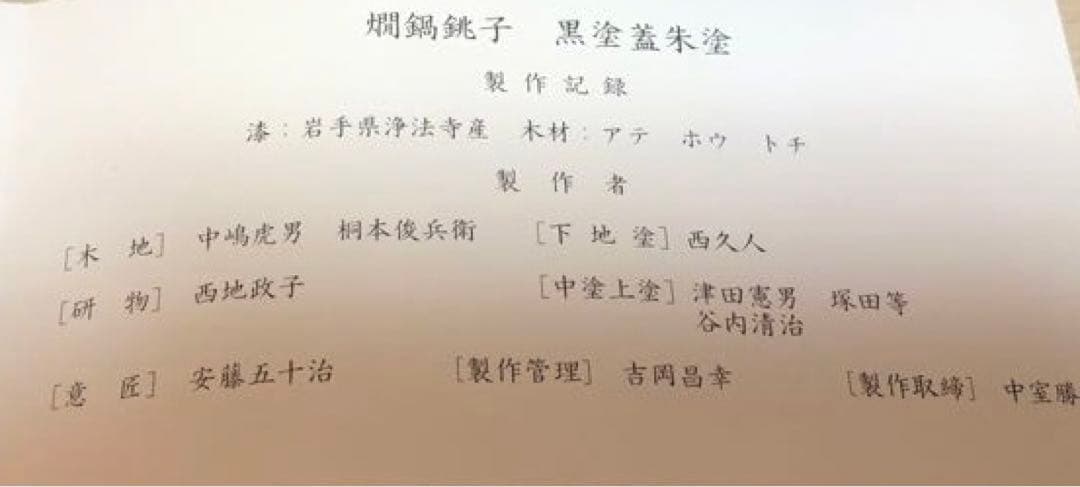 燗鍋銚子　黒塗蓋朱塗
製作記録
漆：岩手県浄法寺産　木材：アテ　ホウ　トチ
製作者
［木地］中嶋虎男　桐本俊兵衛　［下地塗］西久人
［研物］西地政子　［中塗上塗］津田憲男　塚田等
谷内清治
［意匠］安藤五十治　［製作管理］吉岡昌幸　［製作取締］中室勝